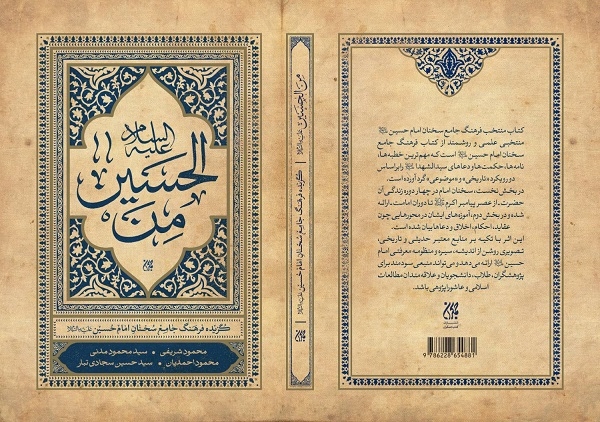 من الحسین علیه السلام
گزیده فرهنگ جامع سخنان امام حسین
محمود شریفی • سید محمود مدنی
محمود احمدیان • سید حسین سجادی تبار
من الحسین
گزیده فرهنگ جامع سخنان امام حسین
کتاب منتخب فرهنگ جامع سخنان امام حسین
منتخبی علمی و روشمند از کتاب فرهنگ جامع
سخنان امام حسین است که مهم‌ترین خطبه‌ها،
نامه‌ها، حکمت‌ها و دعاهای سیدالشهدا را براساس
دو رویکرد «تاریخی» و «موضوعی» گردآورده است.
در بخش نخست، سخنان امام در چهار دوره زندگی آن
حضرت، از عصر پیامبر اکرم تا دوران امامت، ارائه
شده و در بخش دوم، آموزه‌های ایشان در محورهایی چون
عقاید، احکام، اخلاق و دعاها بیان شده است.
این اثر با تکیه بر منابع معتبر حدیثی و تاریخی،
تصویری روشن از اندیشه، سیره و منظومه معرفتی امام
حسین ارائه می‌دهد و می‌تواند منبعی سودمند برای
پژوهشگران، طلاب، دانشجویان و علاقه‌مندان مطالعات
اسلامی و عاشوراپژوهی باشد.
9 786228 654881